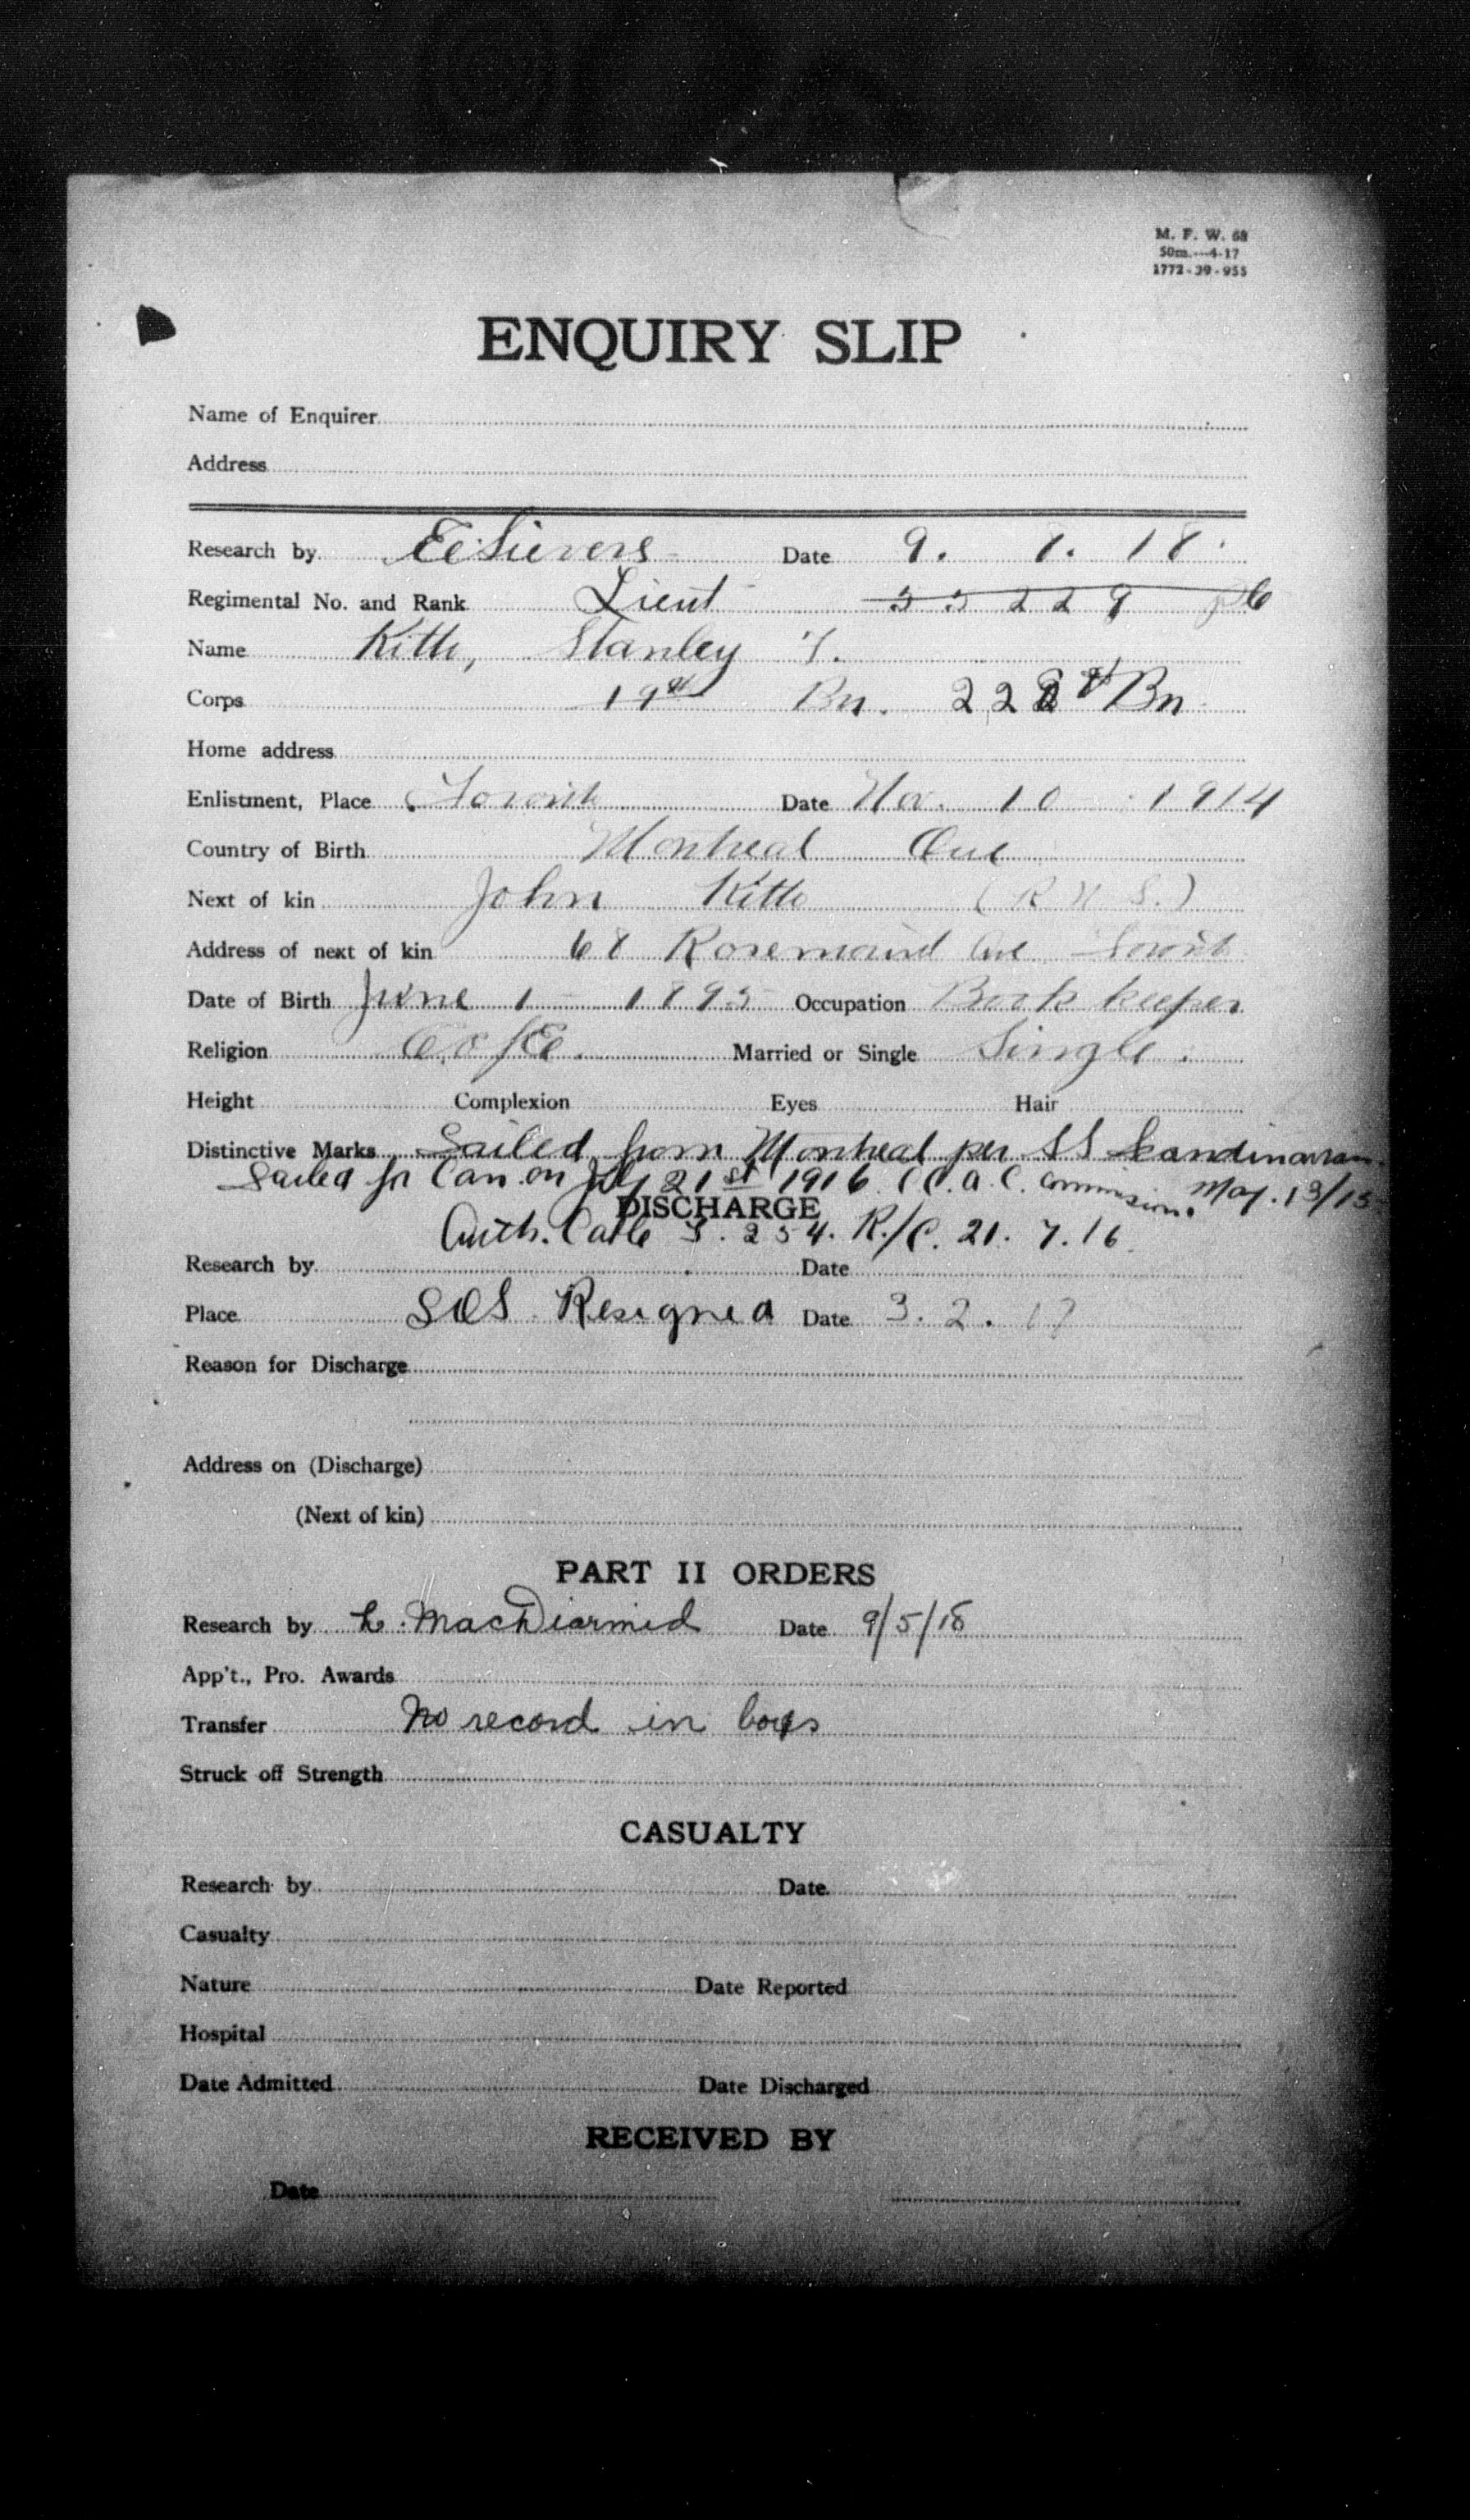 M. F. W. 68
50m.—4-17
1772-39-955
ENQUIRY SLIP
Name of Enquirer
Address
Research by Date 9.
Regimental No. and Rank Lieut
Name Kitto, Stanley
Corps 19th Bn. Bn
Home address
Enlistment, Place Toronto Date Nov. 10 1914
Country of Birth Montreal Que
Next of kin John Kitto
Address of next of kin 68 Ave Toronto
Date of Birth June 1 - 1895 Occupation Book keeper
Religion C. of E. Married or Single Single.
Height Complexion Eyes Hair
Distinctive Marks Sailed from Montreal per SS Scandinavian
May. 13/15
Sailed for Can. on July 21st 1916 (C.A.C. commission.
DISCHARGE
Auth. Cable 254. R./C. 21. 7. 16.
Research by Date
Place SOS Resigned Date 3. 2. 17
Reason for Discharge
Address on (Discharge)
(Next of kin)
PART II ORDERS
Research by L. MacDiarmid Date 9/5/18
App't., Pro. Awards
Transfer No record in
Struck off Strength
CASUALTY
Research by Date
Casualty
Nature Date Reported
Hospital
Date Admitted Date Discharged
RECEIVED BY
Date